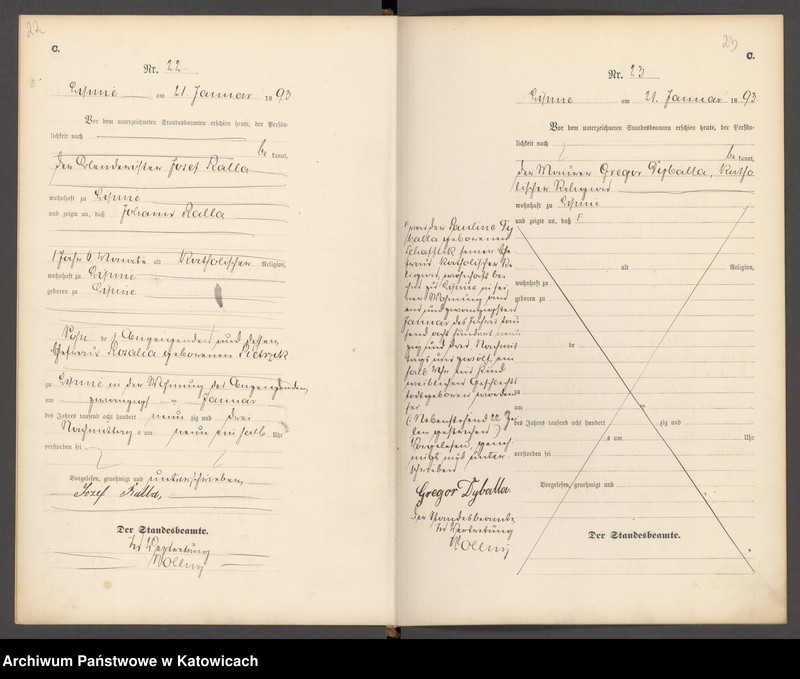 22
C.
Nr. 22.
am 21. Januar 1893
Vor dem unterzeichneten Standesbeamten erschien heute, der Persön-
lichkeit nach
be kannt,
der Josef Kalla
wohnhaft zu
und zeigte an, daß Johann Kalla
1 Jahr 6 Monate alt Katholischer Religion,
wohnhaft zu
geboren zu
Sohn des Anzeigenden und dessen
Ehefrau Rosalia geborenen Pietrzik
zu in der Wohnung des Anzeigenden,
am zwanzigsten Januar
des Jahres tausend acht hundert neun zig und drei
Nachmittag s um neun ein halb Uhr
verstorben sei
Vorgelesen, genehmigt und unterschrieben
Jozef Kalla,
Der Standesbeamte.
In Vertretung
Wollny
23
C.
Nr. 23
am 21. Januar 1893
Vor dem unterzeichneten Standesbeamten erschien heute, der Persön-
lichkeit nach
be kannt,
der Maurer Gregor Dyballa, Katho
lischer Religion
wohnhaft zu
und zeigte an, daß
von der Pauline Dy
balla geborenen
seiner Ehe
frau Katholischer Re
ligion, wohnhaft bei
ihm zu in sei
ner Wohnung am
ein und zwanzigsten
Januar des Jahres tau
send acht hundert neun
zig und drei Nachmit
tags um zwölf ein
halb Uhr ein Kind
weiblichen Geschlechts
todtgeboren worden
sei
(Nebenstehend 22 Zei
len gestrichen)
Vorgelesen, geneh
migt und unter
schrieben
Gregor Dyballa.
Der Standesbeamte
In Vertretung
Wollny
alt Religion,
wohnhaft zu
geboren zu
de
zu
am
des Jahres tausend acht hundert zig und
s um Uhr
verstorben sei
Vorgelesen, genehmigt und
Der Standesbeamte.
Archiwum Państwowe w Katowicach